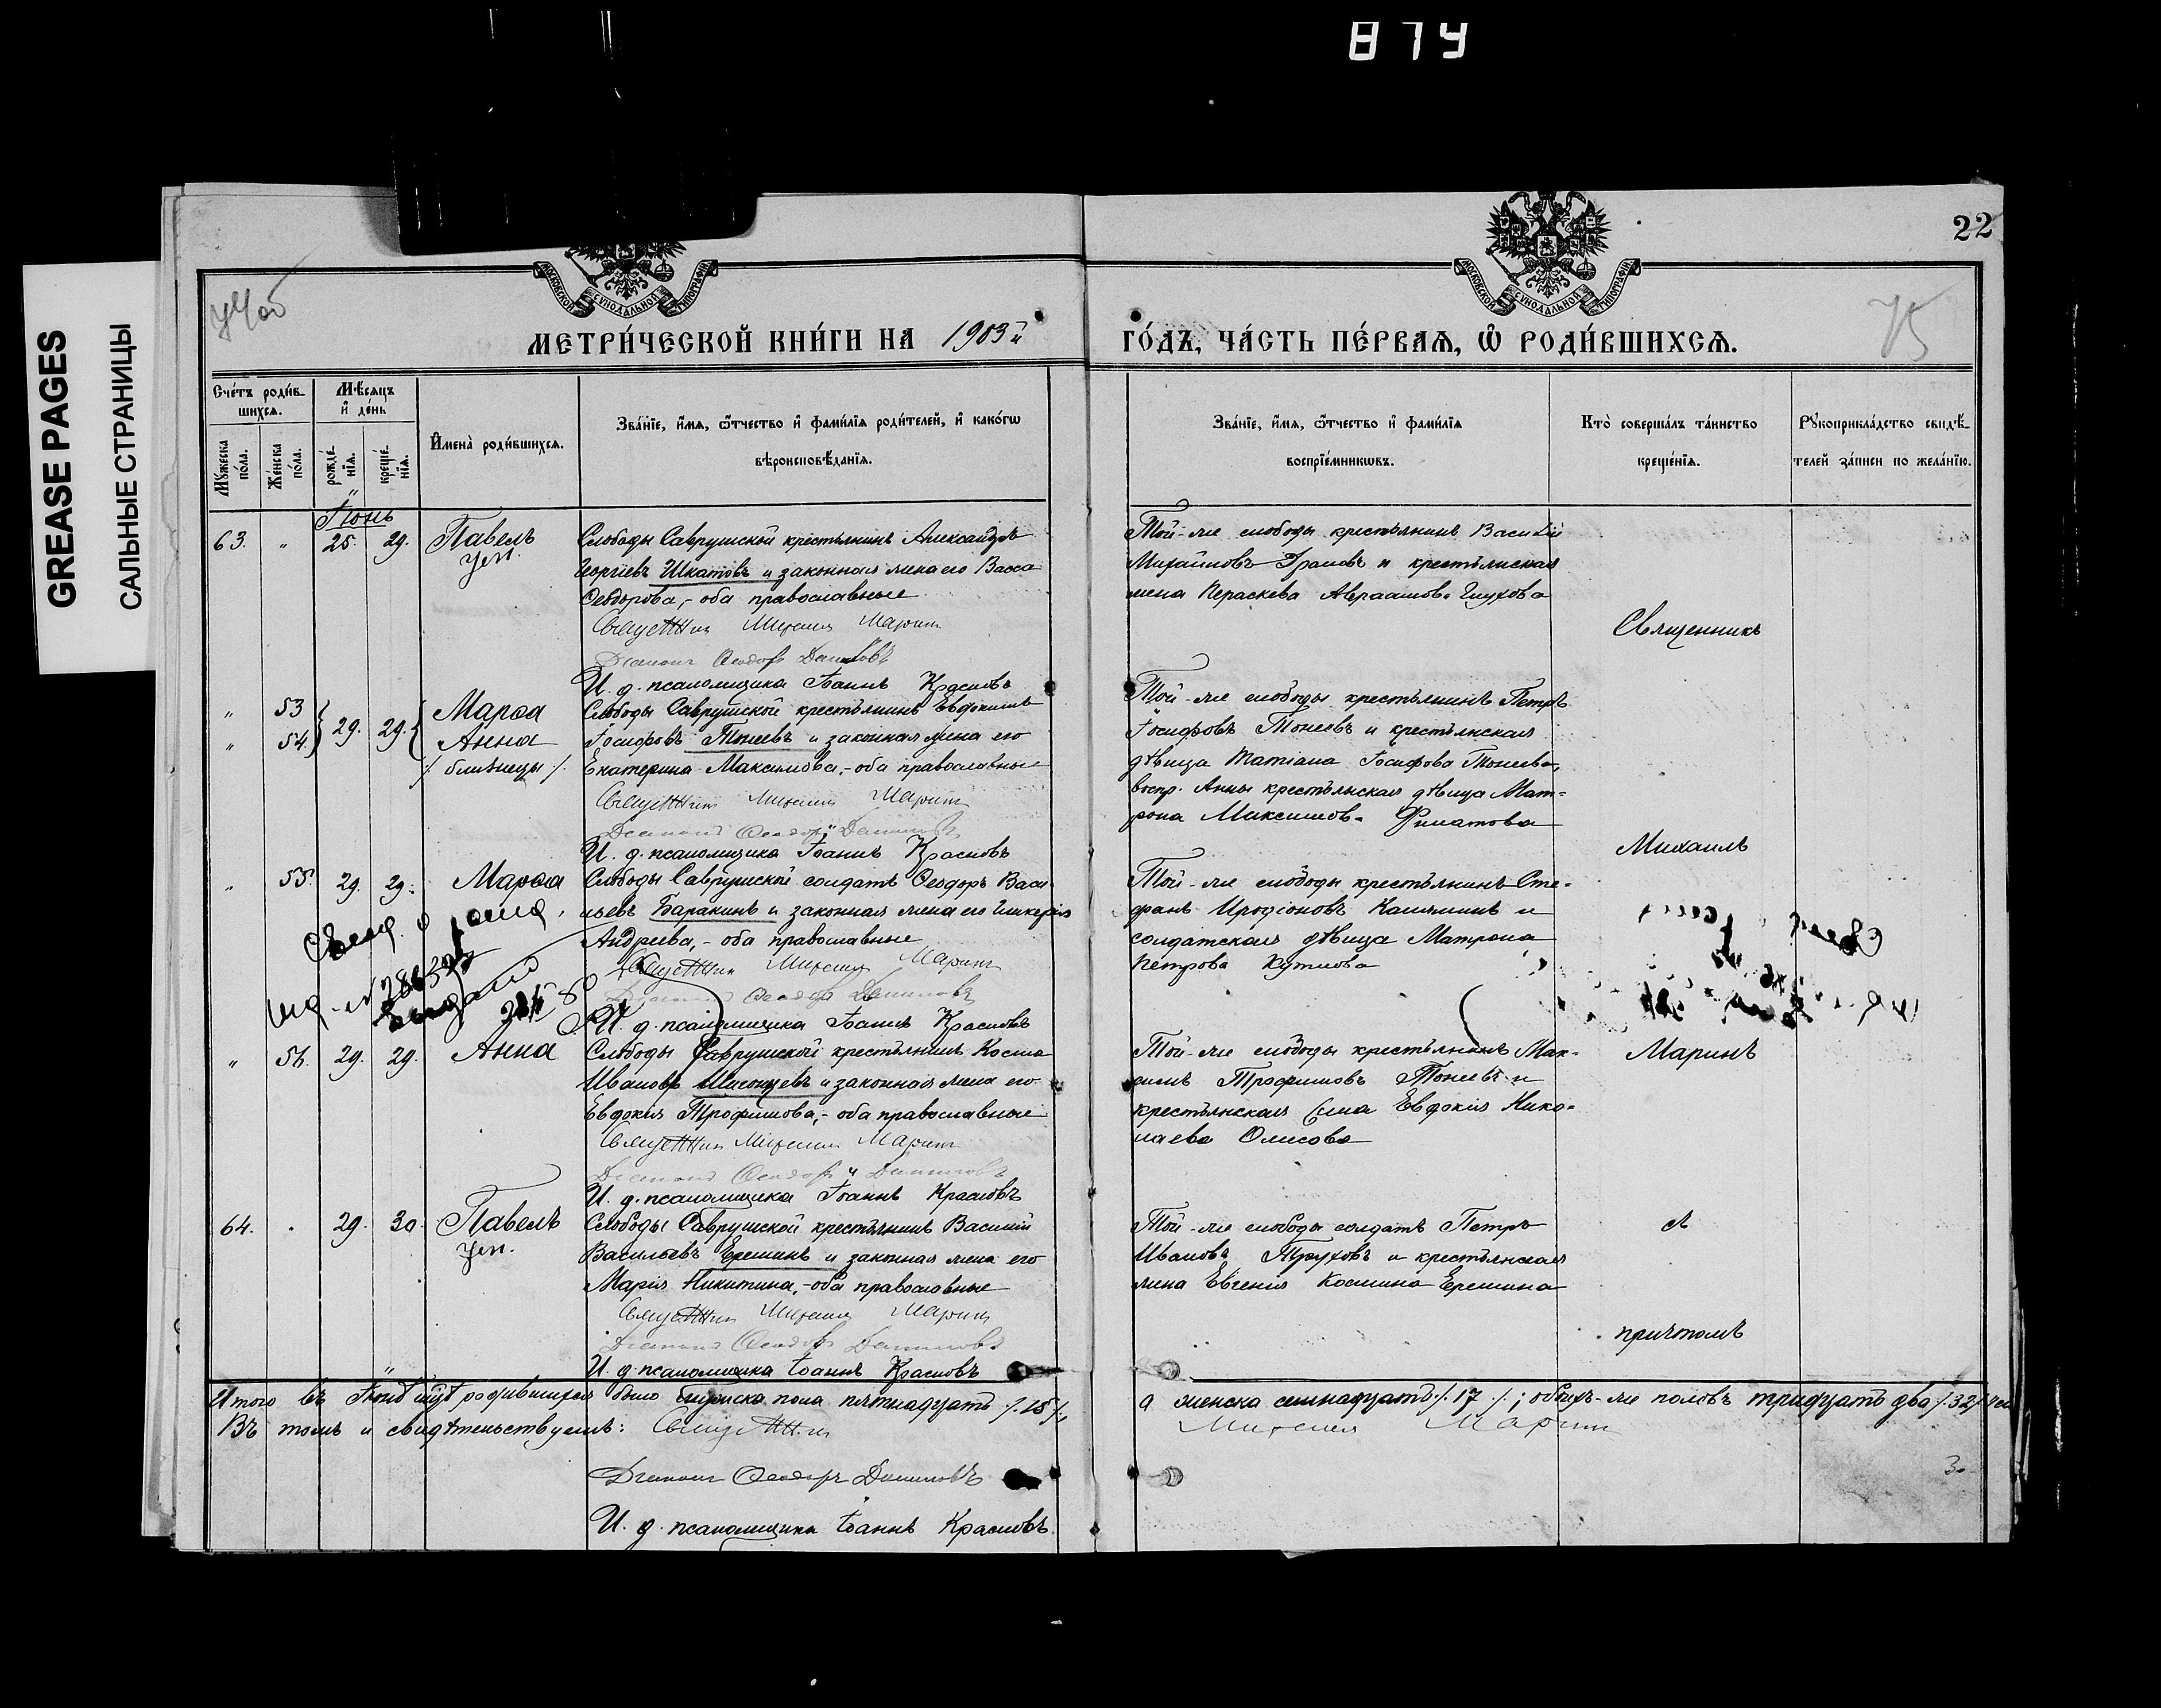 874
GREASE PAGES
САЛЬНЫЕ СТРАНИЦЫ
22
75
МОСКОВСКОЙ СѴНОДАЛЬНОЙ ТИПОГРАФІИ
МОСКОВСКОЙ СѴНОДАЛЬНОЙ ТИПОГРАФІИ
МЕТРИ́ЧЕСКОЙ КНИ́ГИ НА 1903й
ГО́ДЪ, ЧА́СТЬ ПЕ́РВАѦ, Ѡ҆ РОДИ́ВШИХСѦ.
Сче́тъ роди́в-
шихсѧ.
Мꙋ́жеска по́ла.
Же́нска по́ла.
Мѣ́сѧцъ
и҆ де́нь
рожде́-
нїѧ.
креще́-
нїѧ.
И҆мена̀ роди́вшихсѧ.
Зва́нїе, и҆́мѧ, ѻ҆́тчество и҆ фами́лїѧ роди́телей, и҆ како́гѡ
вѣроисповѣ́данїѧ.
Зва́нїе, и҆́мѧ, ѻ҆́тчество и҆ фами́лїѧ
воспрїе́мникѡвъ.
Кто̀ соверша́лъ та́инство
креще́нїѧ.
Рꙋкоприкла́дство свидѣ́-
телей за́писи по жела́нїю.
Іюнь
63. " 25. 29. Павелъ
ум.
Слободы Саврушской крестьянинъ Александръ
Георгіевъ Шкатовъ и законная жена его Васса
Ѳеодорова, - оба православные
Священник Михаил Марин
Диаконъ Ѳеодоръ Даниловъ
И. д. псаломщика Іоаннъ Красновъ
Той-же слободы крестьянинъ Василій
Михайловъ Громовъ и крестьянская
жена Параскева Авраамова Глухова
" 53
" 54. 29. 29. Марѳа
Анна
/. близнецы ./
Слободы Саврушской крестьянинъ Евдокимъ
Іосифовъ Тонеевъ и законная жена его
Екатерина Максимова, - оба православные
Священник Михаил Марин
Диаконъ Ѳеодоръ Даниловъ
И. д. псаломщика Іоаннъ Красновъ
Той-же слободы крестьянинъ Петръ
Іосифовъ Тонеевъ и крестьянская
дѣвица Татіана Іосифова Тонеева,
воспр. Анны крестьянская дѣвица Мат-
рона Максимова Филатова
" 55. 29. 29. Марѳа
Слободы Саврушской солдатъ Ѳеодоръ Васи-
льевъ Баракинъ и законная жена его Гликерія
Андреева, - оба православные
Священник Михаил Марин
Диаконъ Ѳеодоръ Даниловъ
И. д. псаломщика Іоаннъ Красновъ
Той-же слободы крестьянинъ Сте-
фанъ Иродіоновъ Калякинъ и
солдатская дѣвица Матрона
Петрова Кутлова
" 56. 29. 29. Анна
Слободы Саврушской крестьянинъ Косма
Ивановъ и законная жена его
Евдокія Трофимова, - оба православные
Священник Михаил Марин
Диаконъ Ѳеодоръ Даниловъ
И. д. псаломщика Іоаннъ Красновъ
Той-же слободы крестьянинъ Мак-
симъ Трофимовъ Тонеевъ и
крестьянская жена Евдокія Нико-
лаева Олисова
64. " 29. 30. Павелъ
ум.
Слободы Саврушской крестьянинъ Василій
Васильевъ Еремкинъ и законная жена его
Марія Никитина, - оба православные
Священник Михаил Марин
Диаконъ Ѳеодоръ Даниловъ
И. д. псаломщика Іоаннъ Красновъ
Той-же слободы солдатъ Петръ
Ивановъ Труховъ и крестьянская
жена Евгенія Космина Еремина
Священникъ
Михаилъ
Маринъ
съ
причтомъ
Итого въ Іюнѣ м-цѣ родившихся было мужска пола пятнадцать /. 15 /.,
а женска семнадцать /. 17 /.; обоихъ-же половъ тридцать два /. 32 /. чел.
Въ томъ и свидѣтельствуемъ: Священник Михаил Марин
Диаконъ Ѳеодоръ Даниловъ
И. д. псаломщика Іоаннъ Красновъ